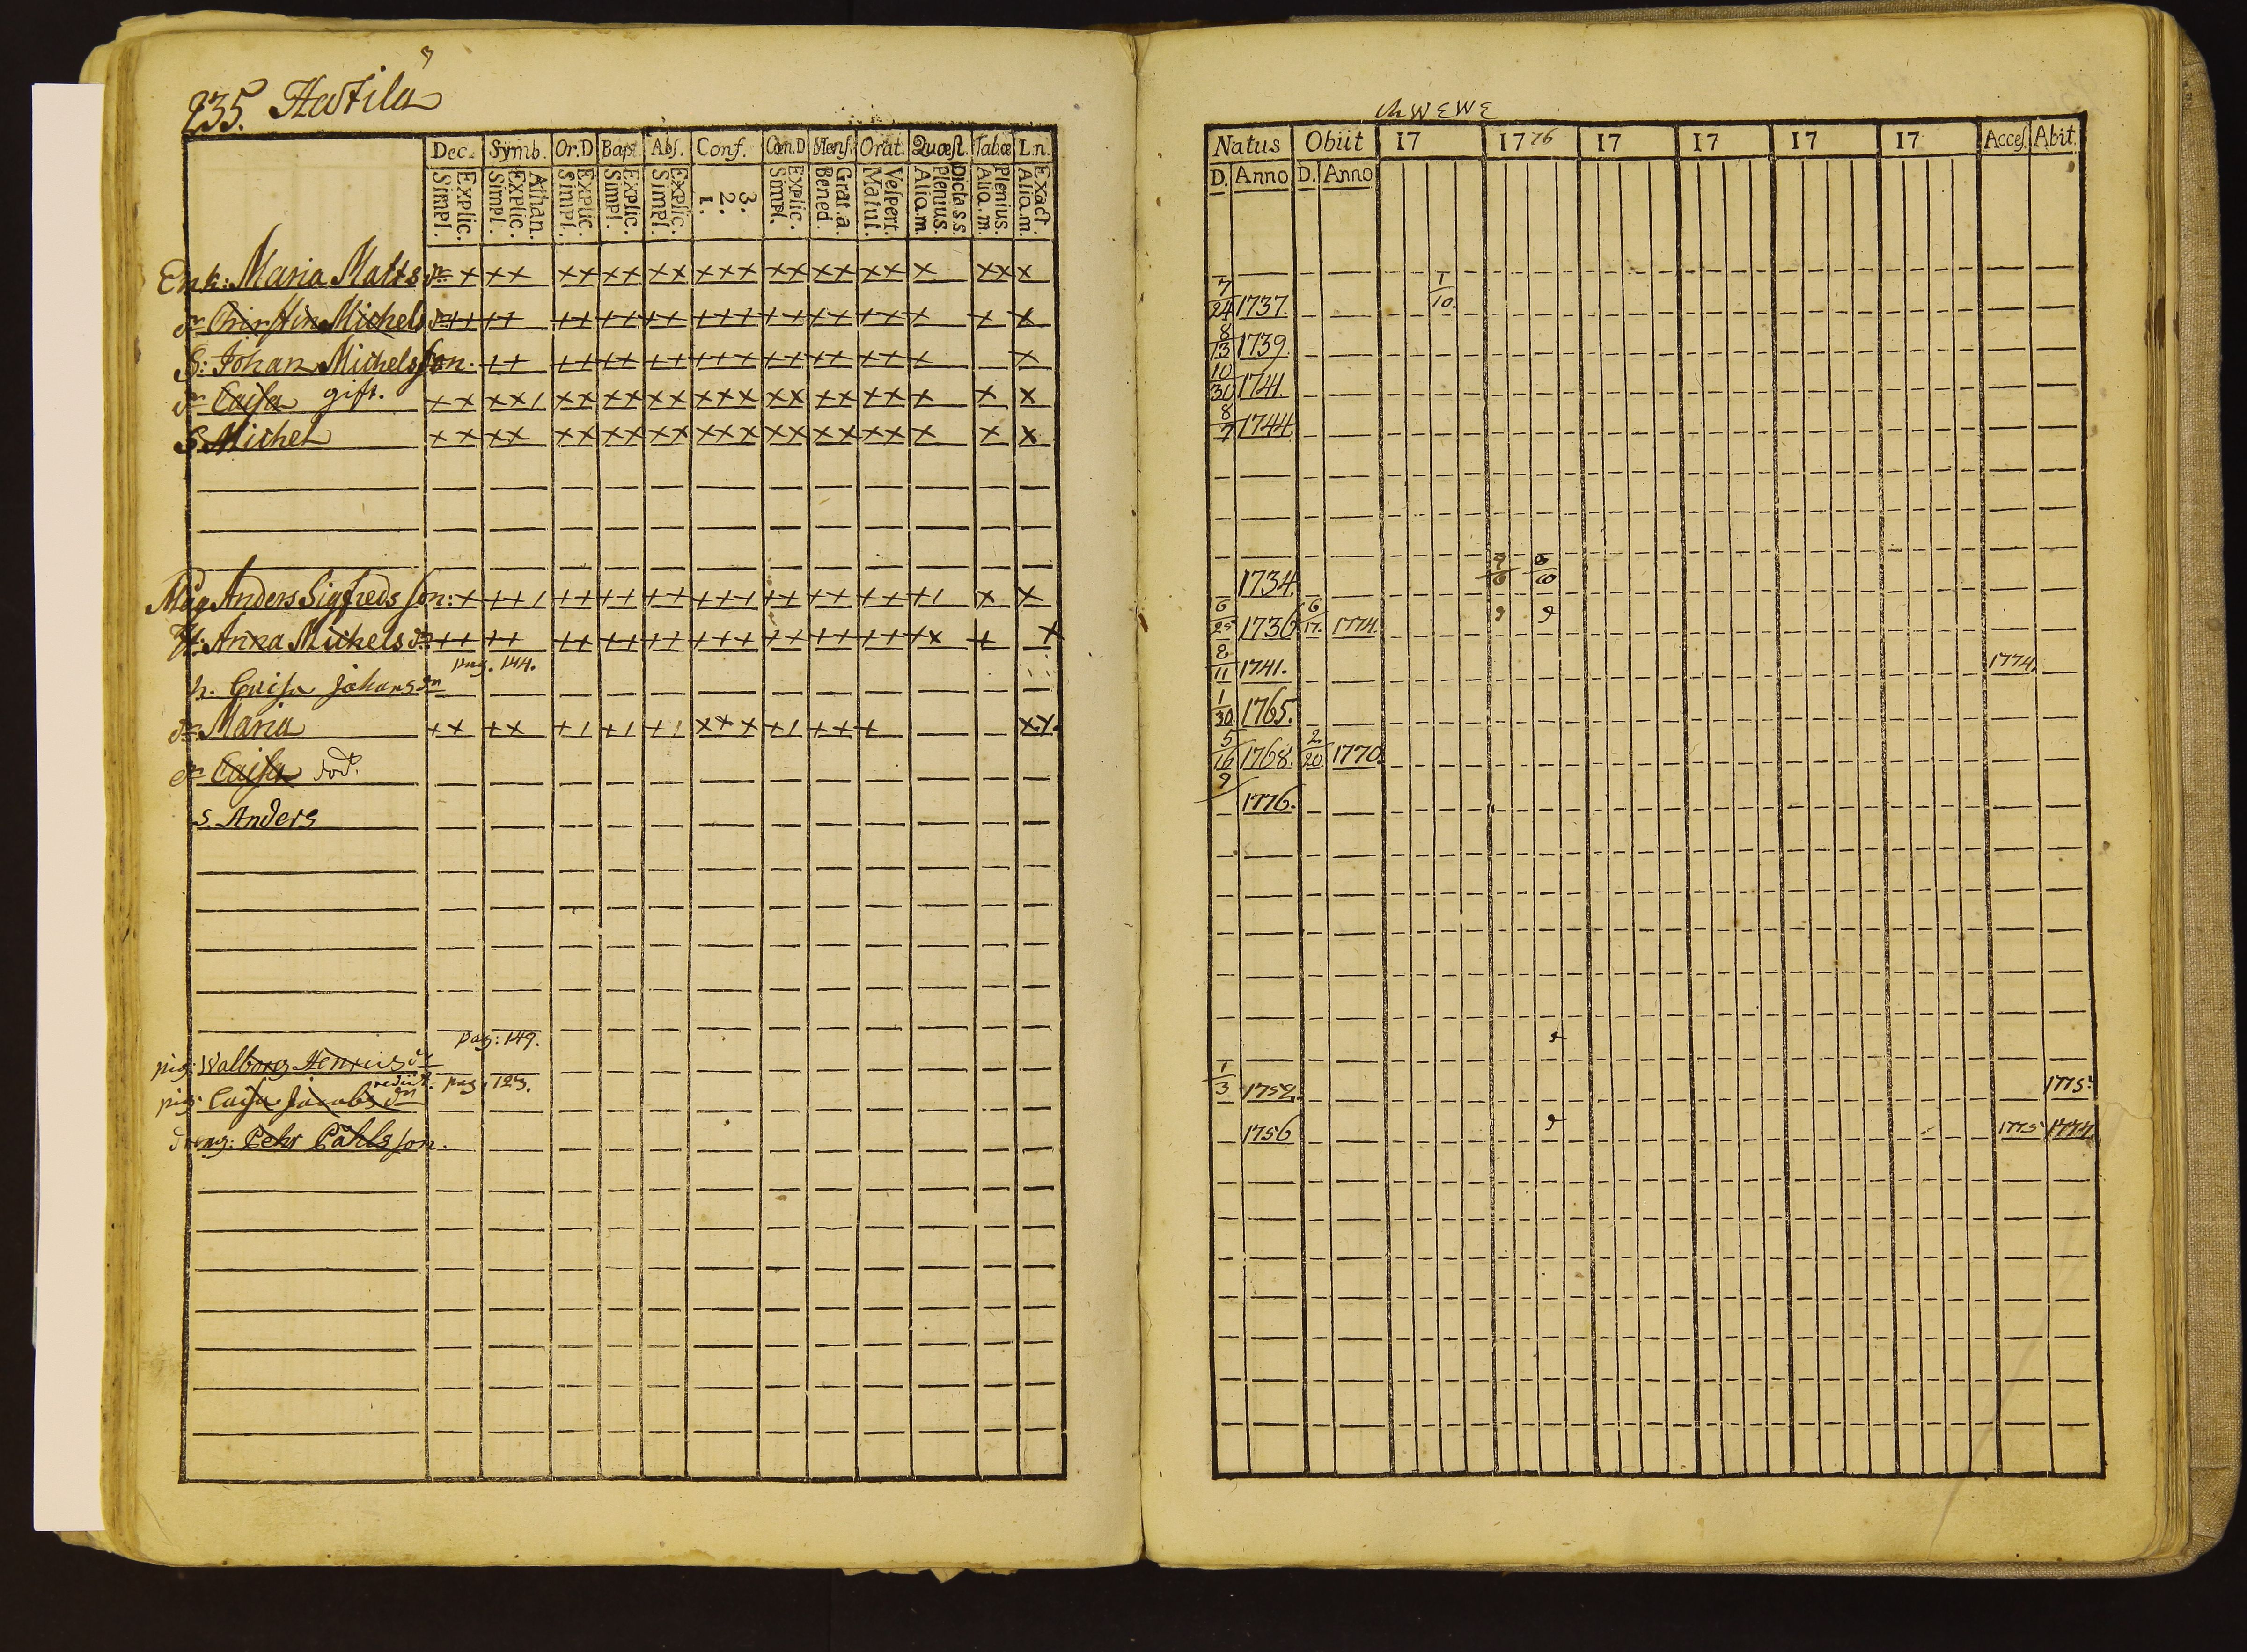 235. Havila
Dec. Symb. Or.D Bapt. Abs. Conf. Cœn.D Mens. Orat. Quæst. Tabœ L.n.
Explic. Simpl. Athan. Explic. Simpl. Explic. Simpl. Explic. Simpl. Explic. Simpl. 3. 2. 1. Explic. Simpl. Grat. a Bened. Vespert. Matut. Dicta s.s. Plenius. Aliq.m. Plenius. Aliq.m. Exact. Aliq.m.
Enk: Maria Mattsdr
dr Christin Michelsdr
S: Johan Michelsson.
dr Caisa gift.
S. Michel
Måg Anders Sigfredsson:
H. Anna Michelsdr
pag. 144.
h. Caisa Johansdr
dr Maria
dr Caisa död.
s. Anders
pag: 149.
pig: Walborg Henricsdr
rediit. pag. 123.
pig: Caisa Jacobsdr
dreng: Pehr Påhlsson.
Natus Obiit 17 1776 17 17 17 17 Acces. Abit.
D. Anno D. Anno
7/24 1737. 1/10.
8/13 1739.
10/30 1741.
8/7 1744.
1734.
6/25 1736 6/17. 1774.
8/11 1741. 1774.
1/30 1765.
5/16 1768. 2/20 1770.
9/ 1776.
1/3 1752. 1775.
1756 1775 1777.